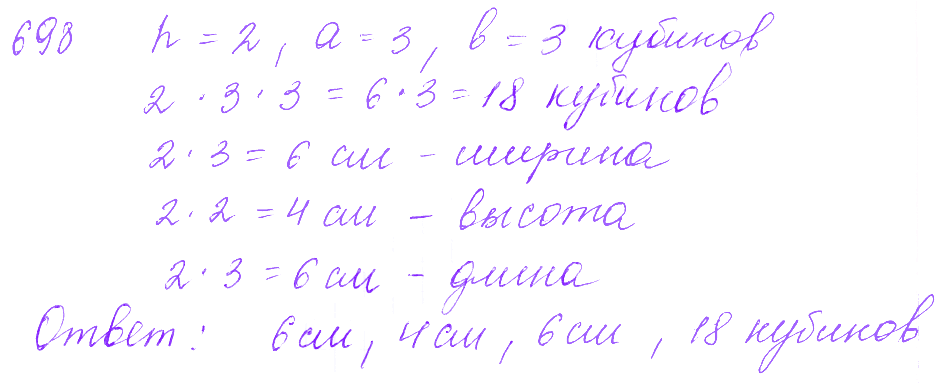 698 h = 2, a = 3, b = 3 кубиков
2 · 3 · 3 = 6 · 3 = 18 кубиков
2 · 3 = 6 см – ширина
2 · 2 = 4 см – высота
2 · 3 = 6 см – длина
Ответ: 6 см, 4 см, 6 см, 18 кубиков